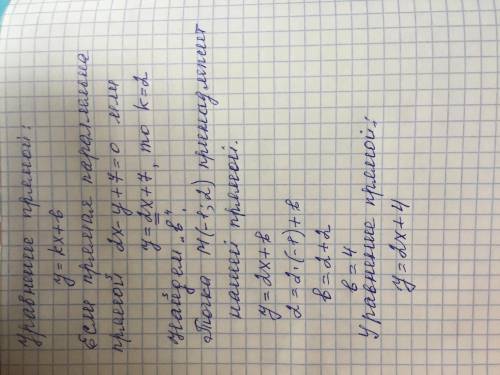 Уравнение прямой:
y = kx + b
Если прямая параллельна
прямой 2x - y + 7 = 0 или
y = 2x + 7, то k = 2
Найдем „b".
Точка M(-1; 2) принадлежит
нашей прямой.
y = 2x + b
2 = 2·(-1) + b
b = 2 + 2
b = 4
Уравнение прямой:
y = 2x + 4